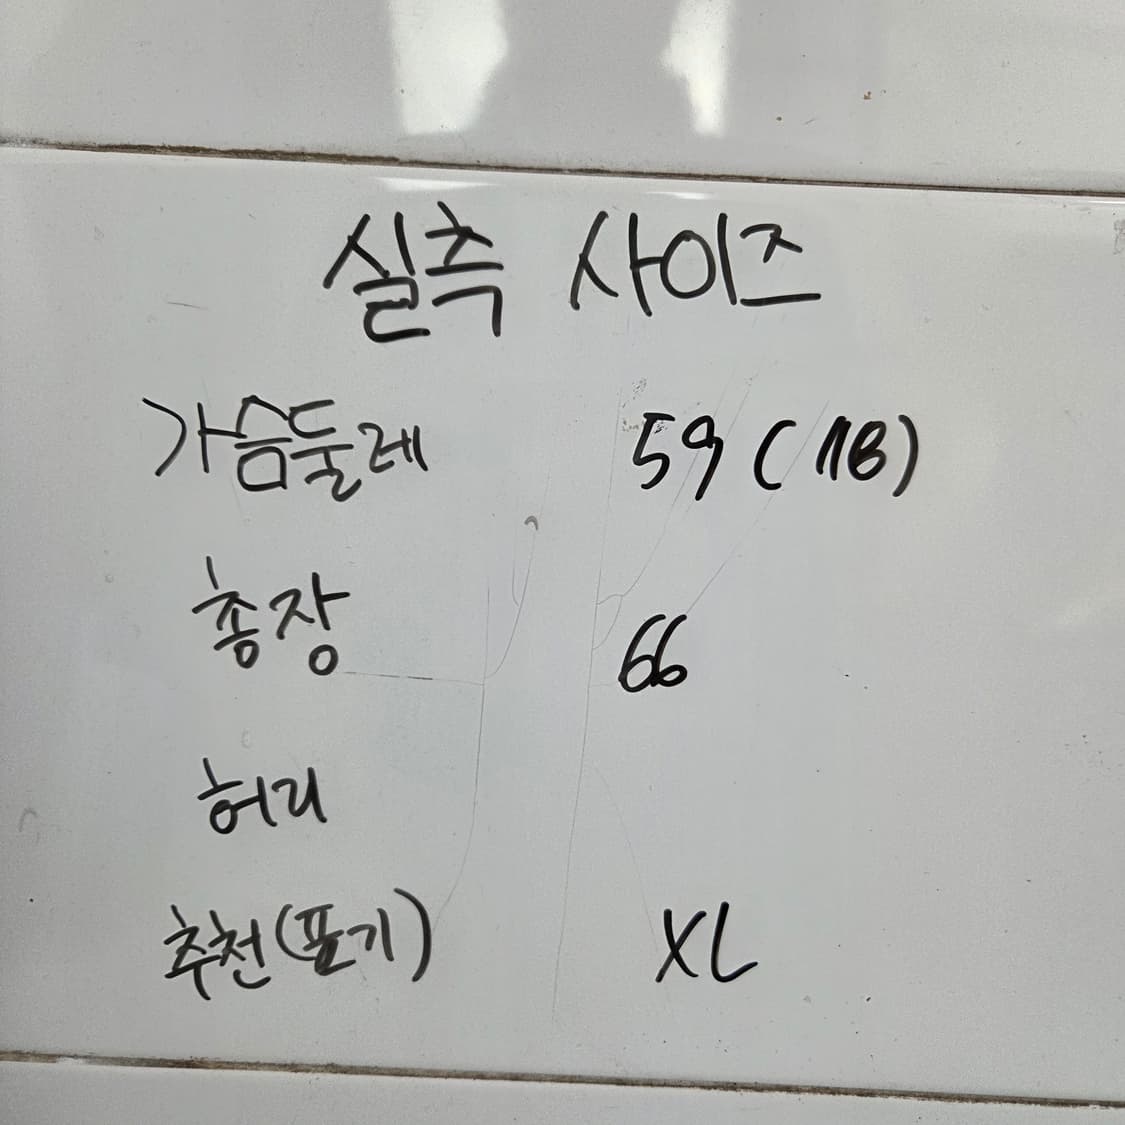 실측 사이즈
가슴둘레 59 (118)
총장 66
허리
추천(표기) XL